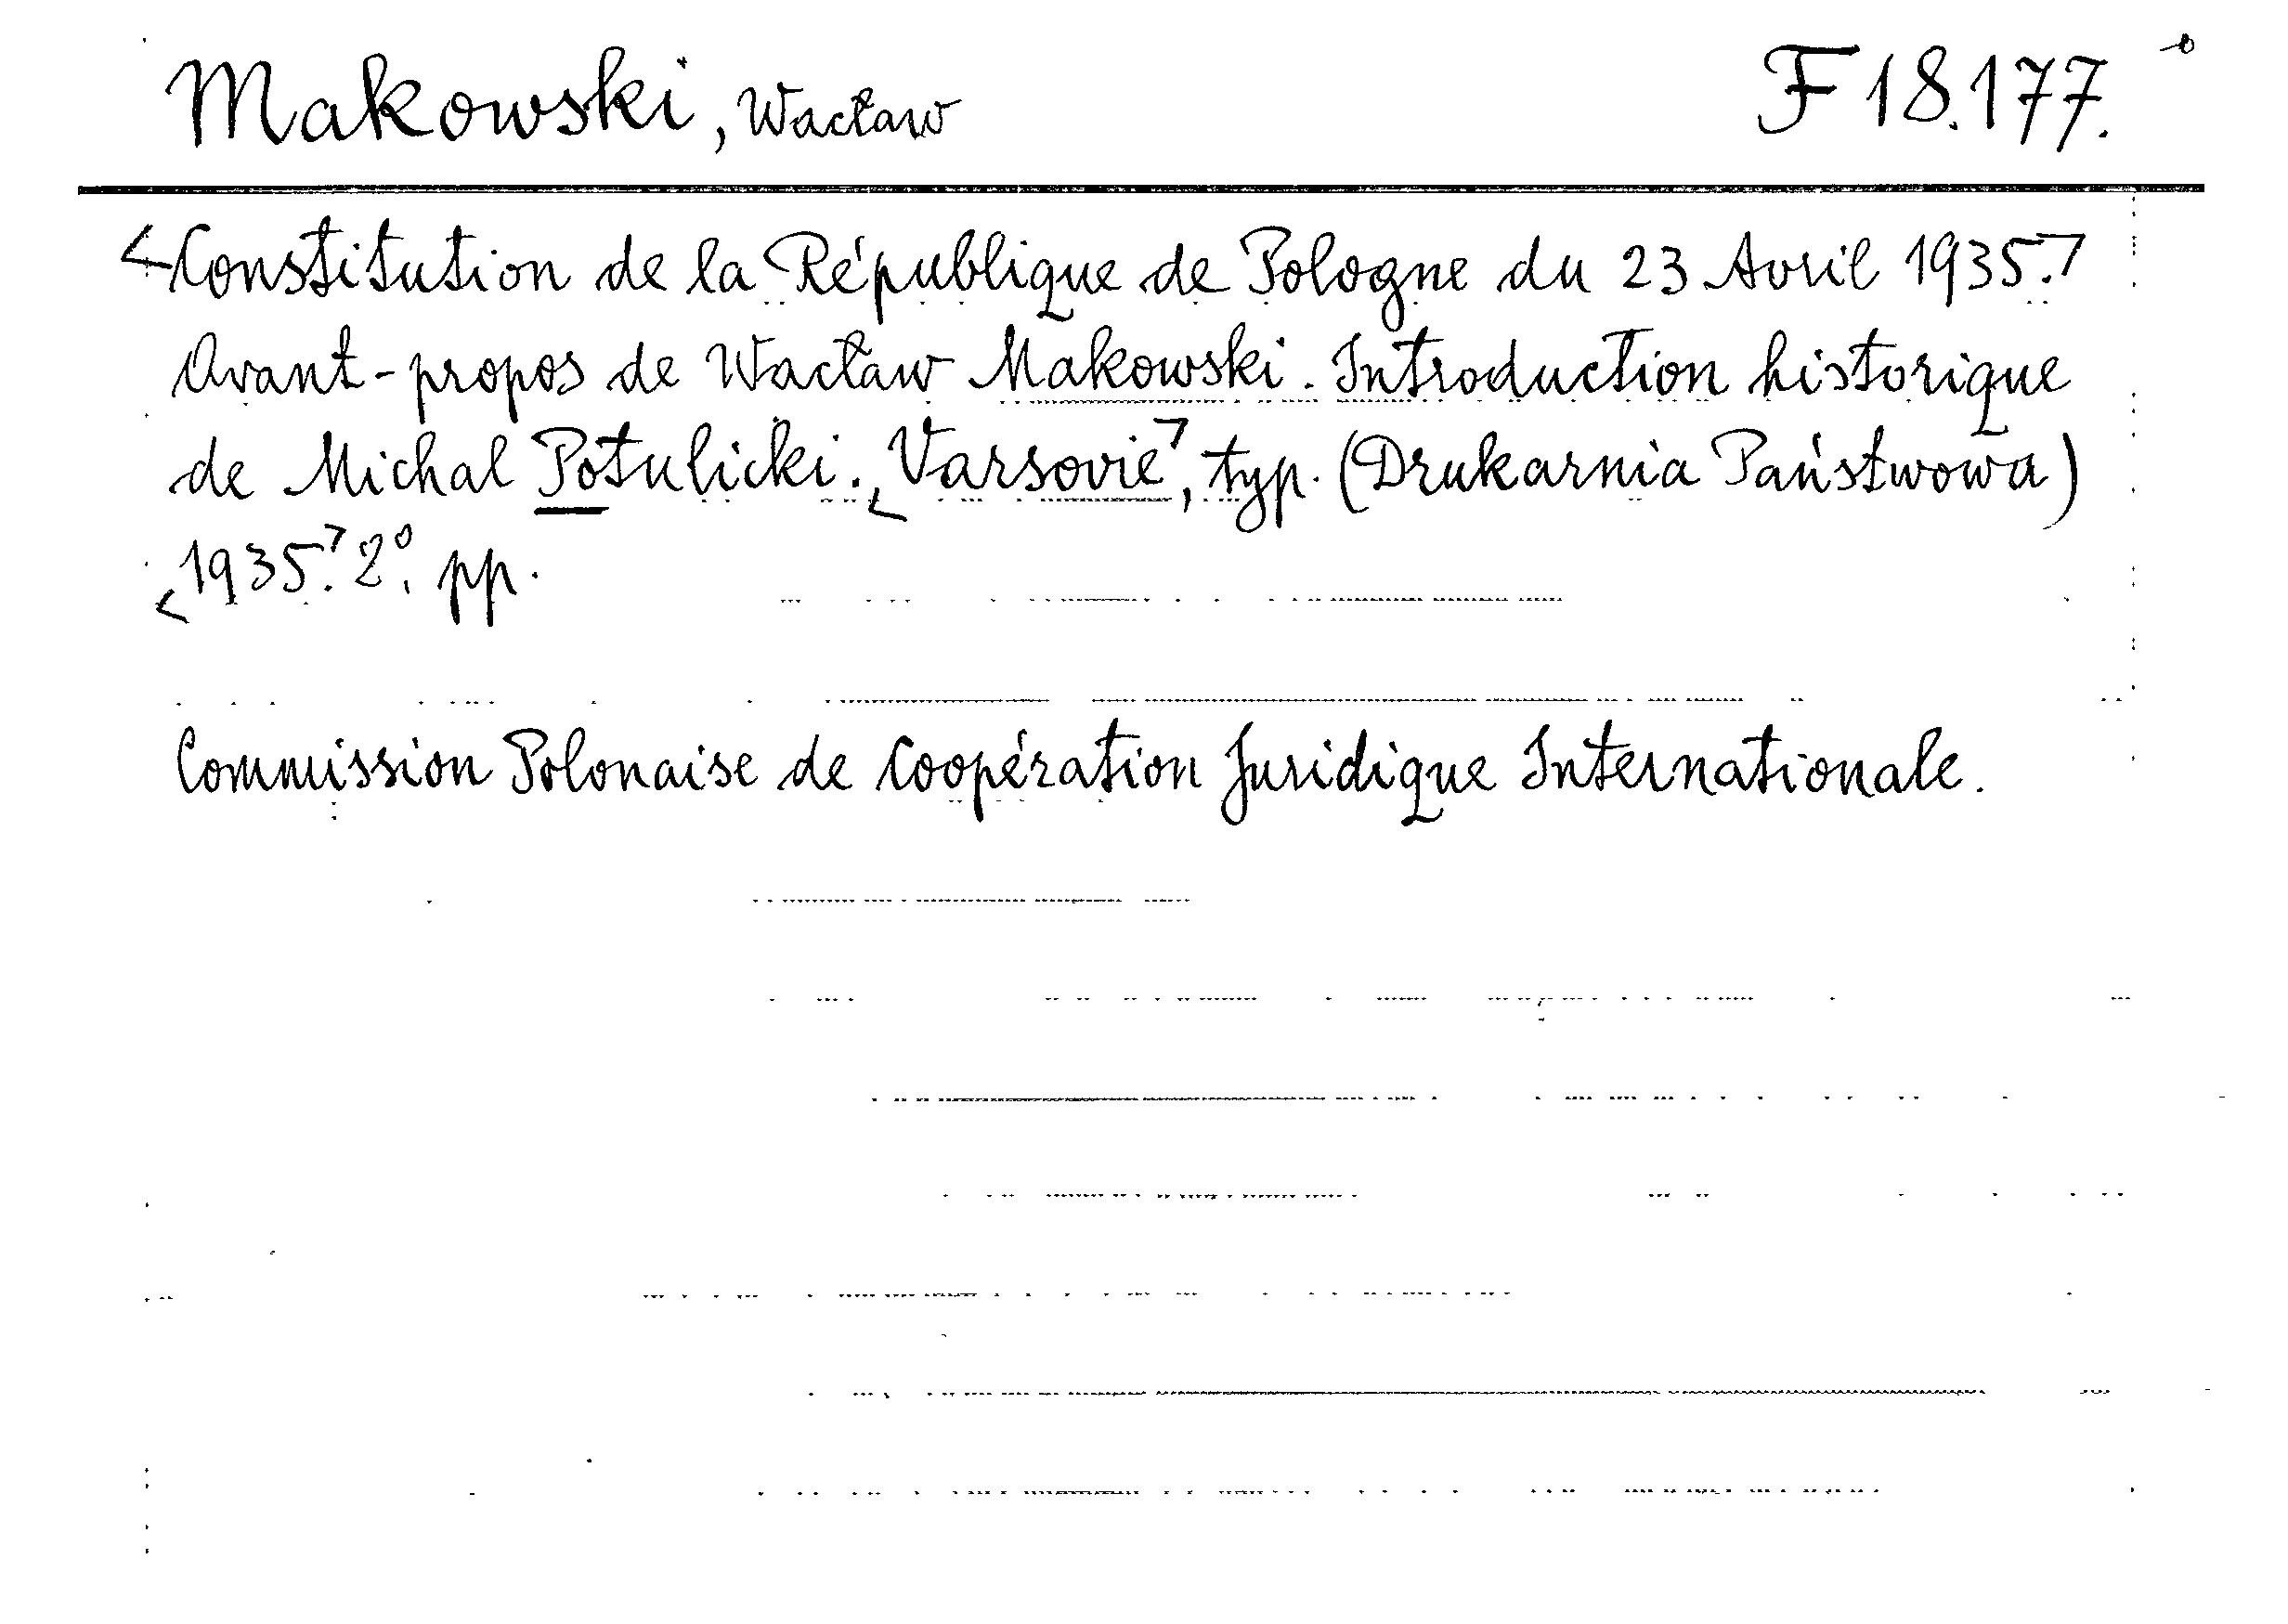 Makowski, Wacław F 18.177.
Constitution de la République de Pologne du 23 Avril 1935.
Avant-propos de Wacław Makowski. Introduction historique
de Michal Potulicki. Varsovie, typ. (Drukarnia Państwowa)
1935. 2°. pp.
Commission Polonaise de Coopération Juridique Internationale.